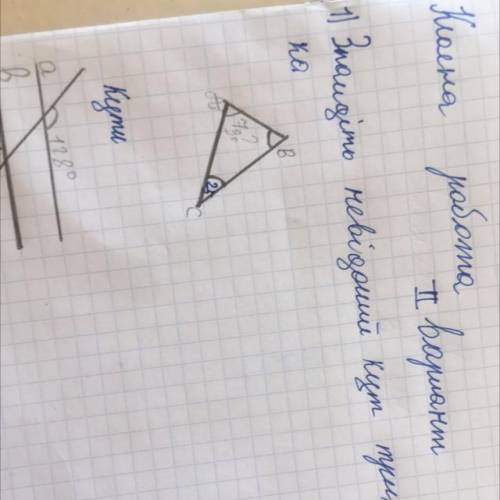 Класна робота
II варіант
1) Знайдіть невідомий кут
ка
B
A
C
2
Кути
a
128°
b